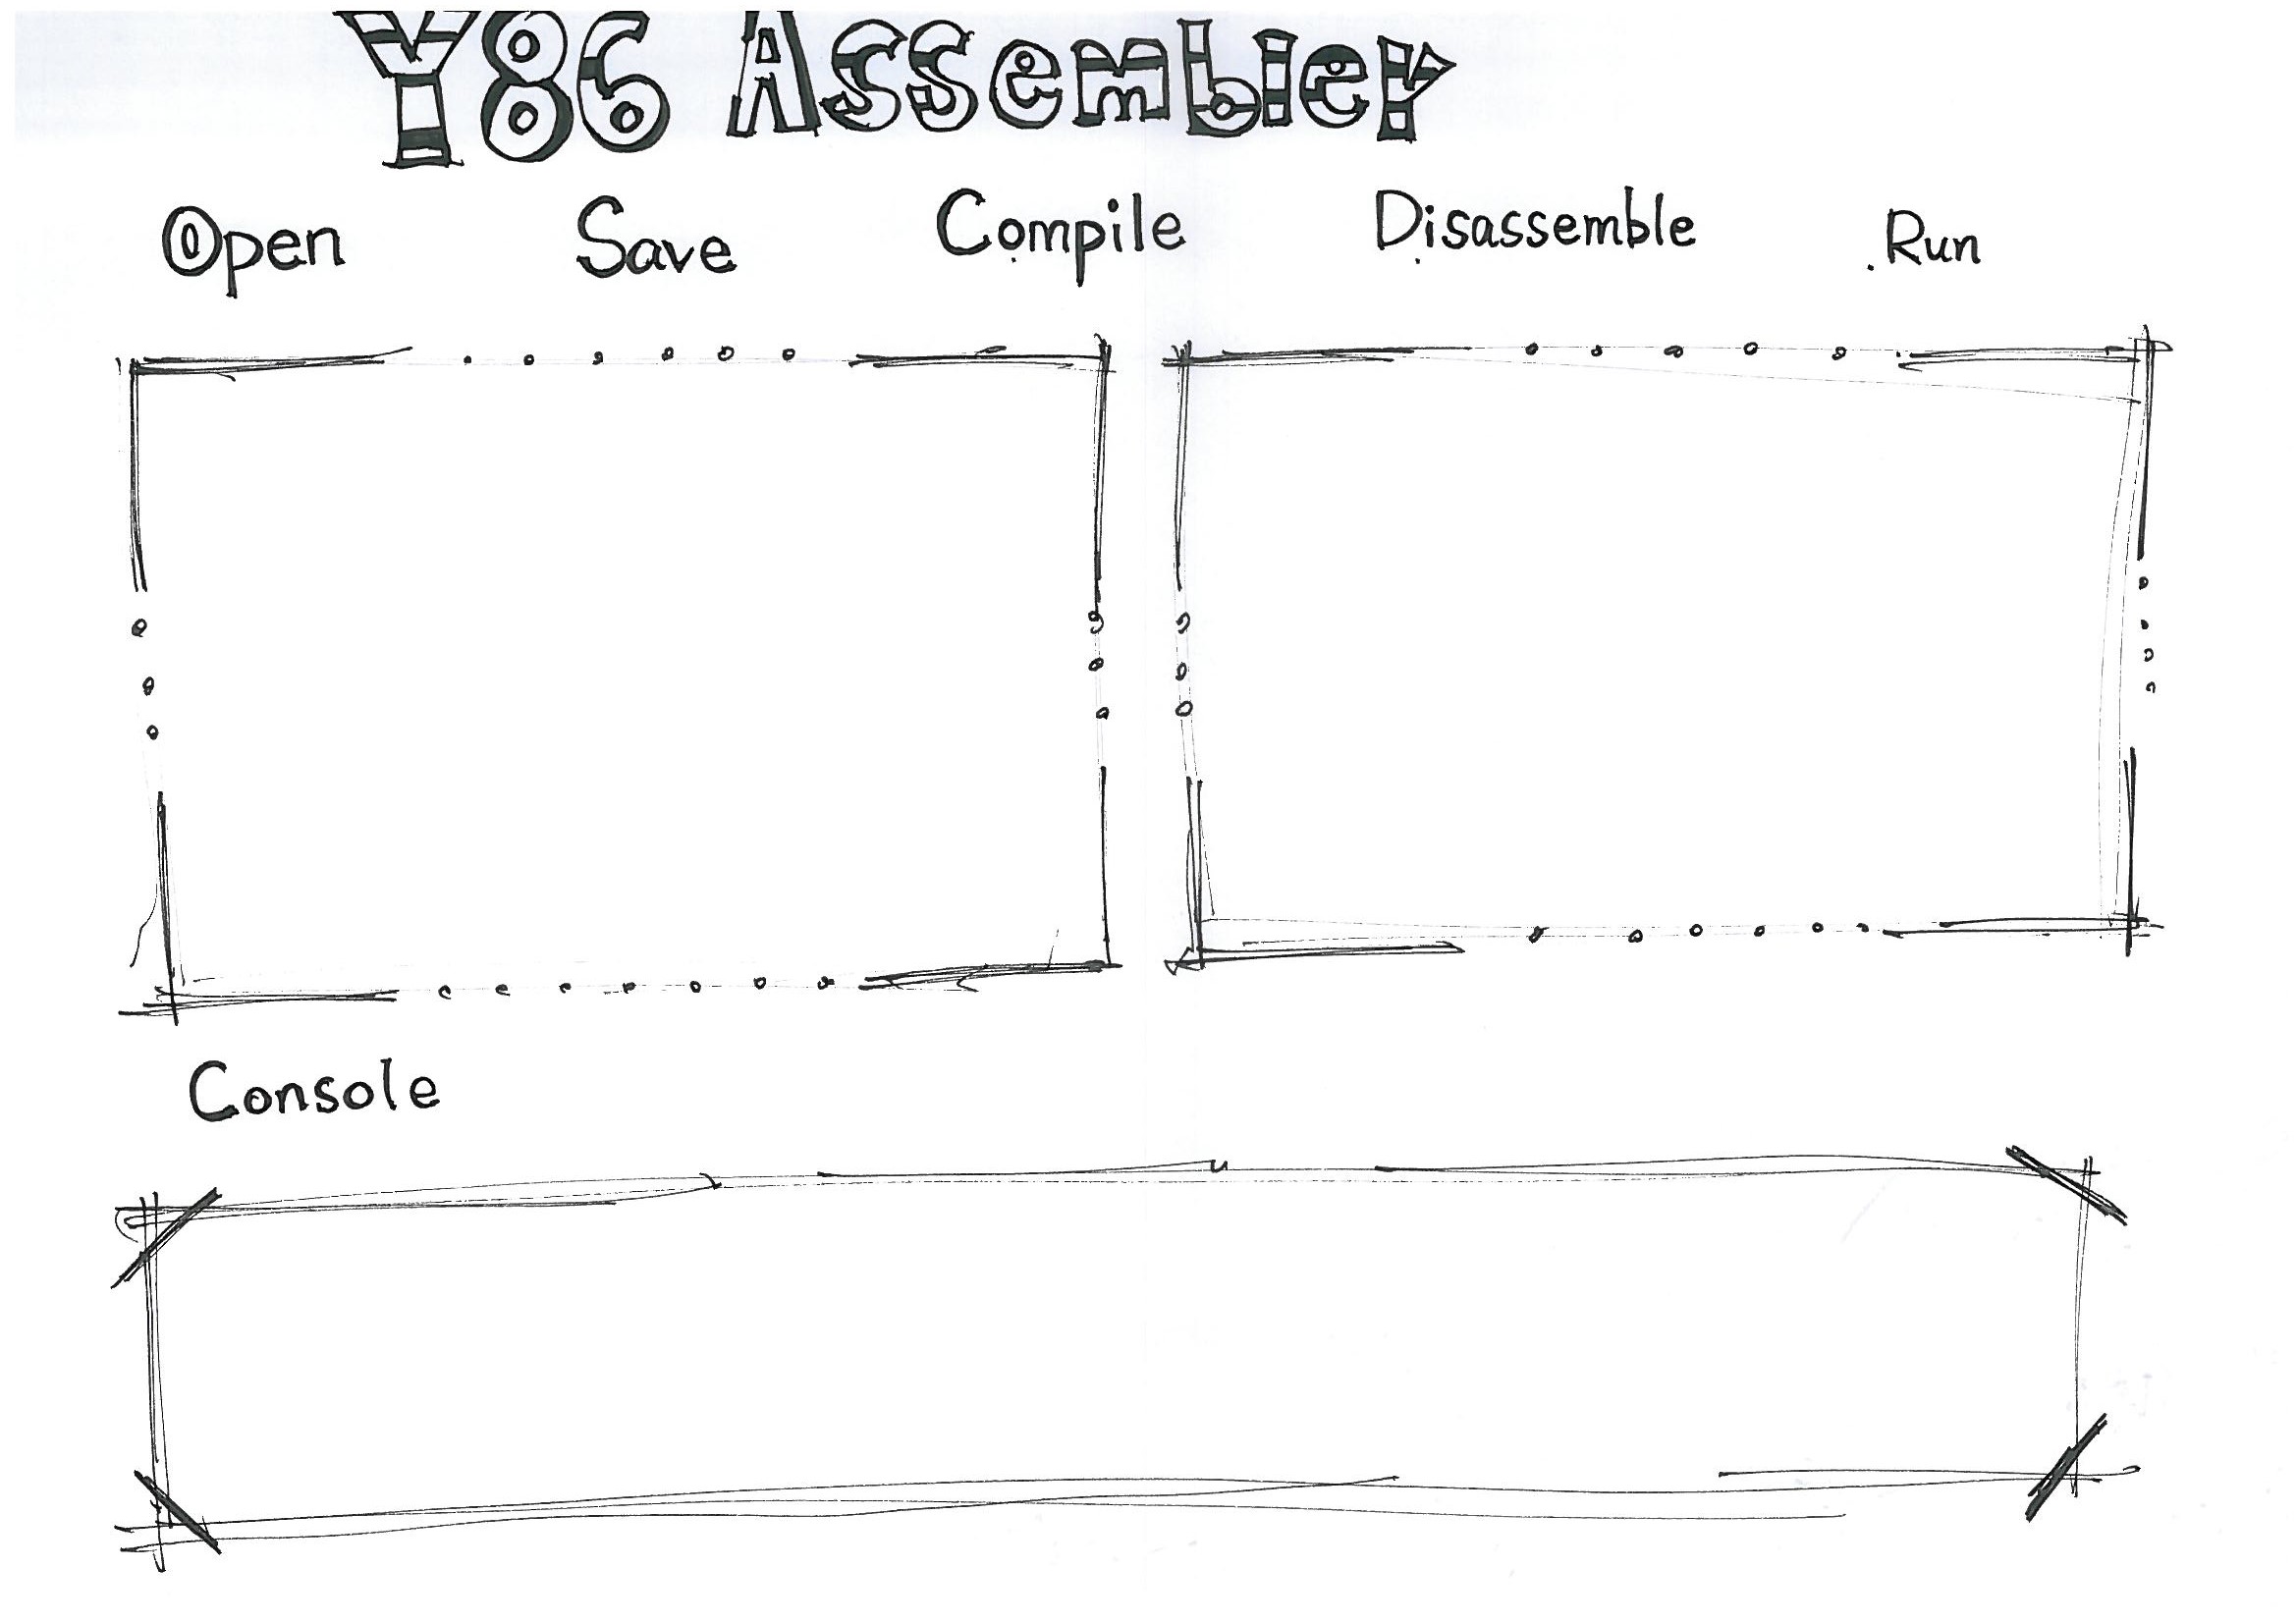 Y86 Assembler
Open Save Compile Disassemble Run
Console